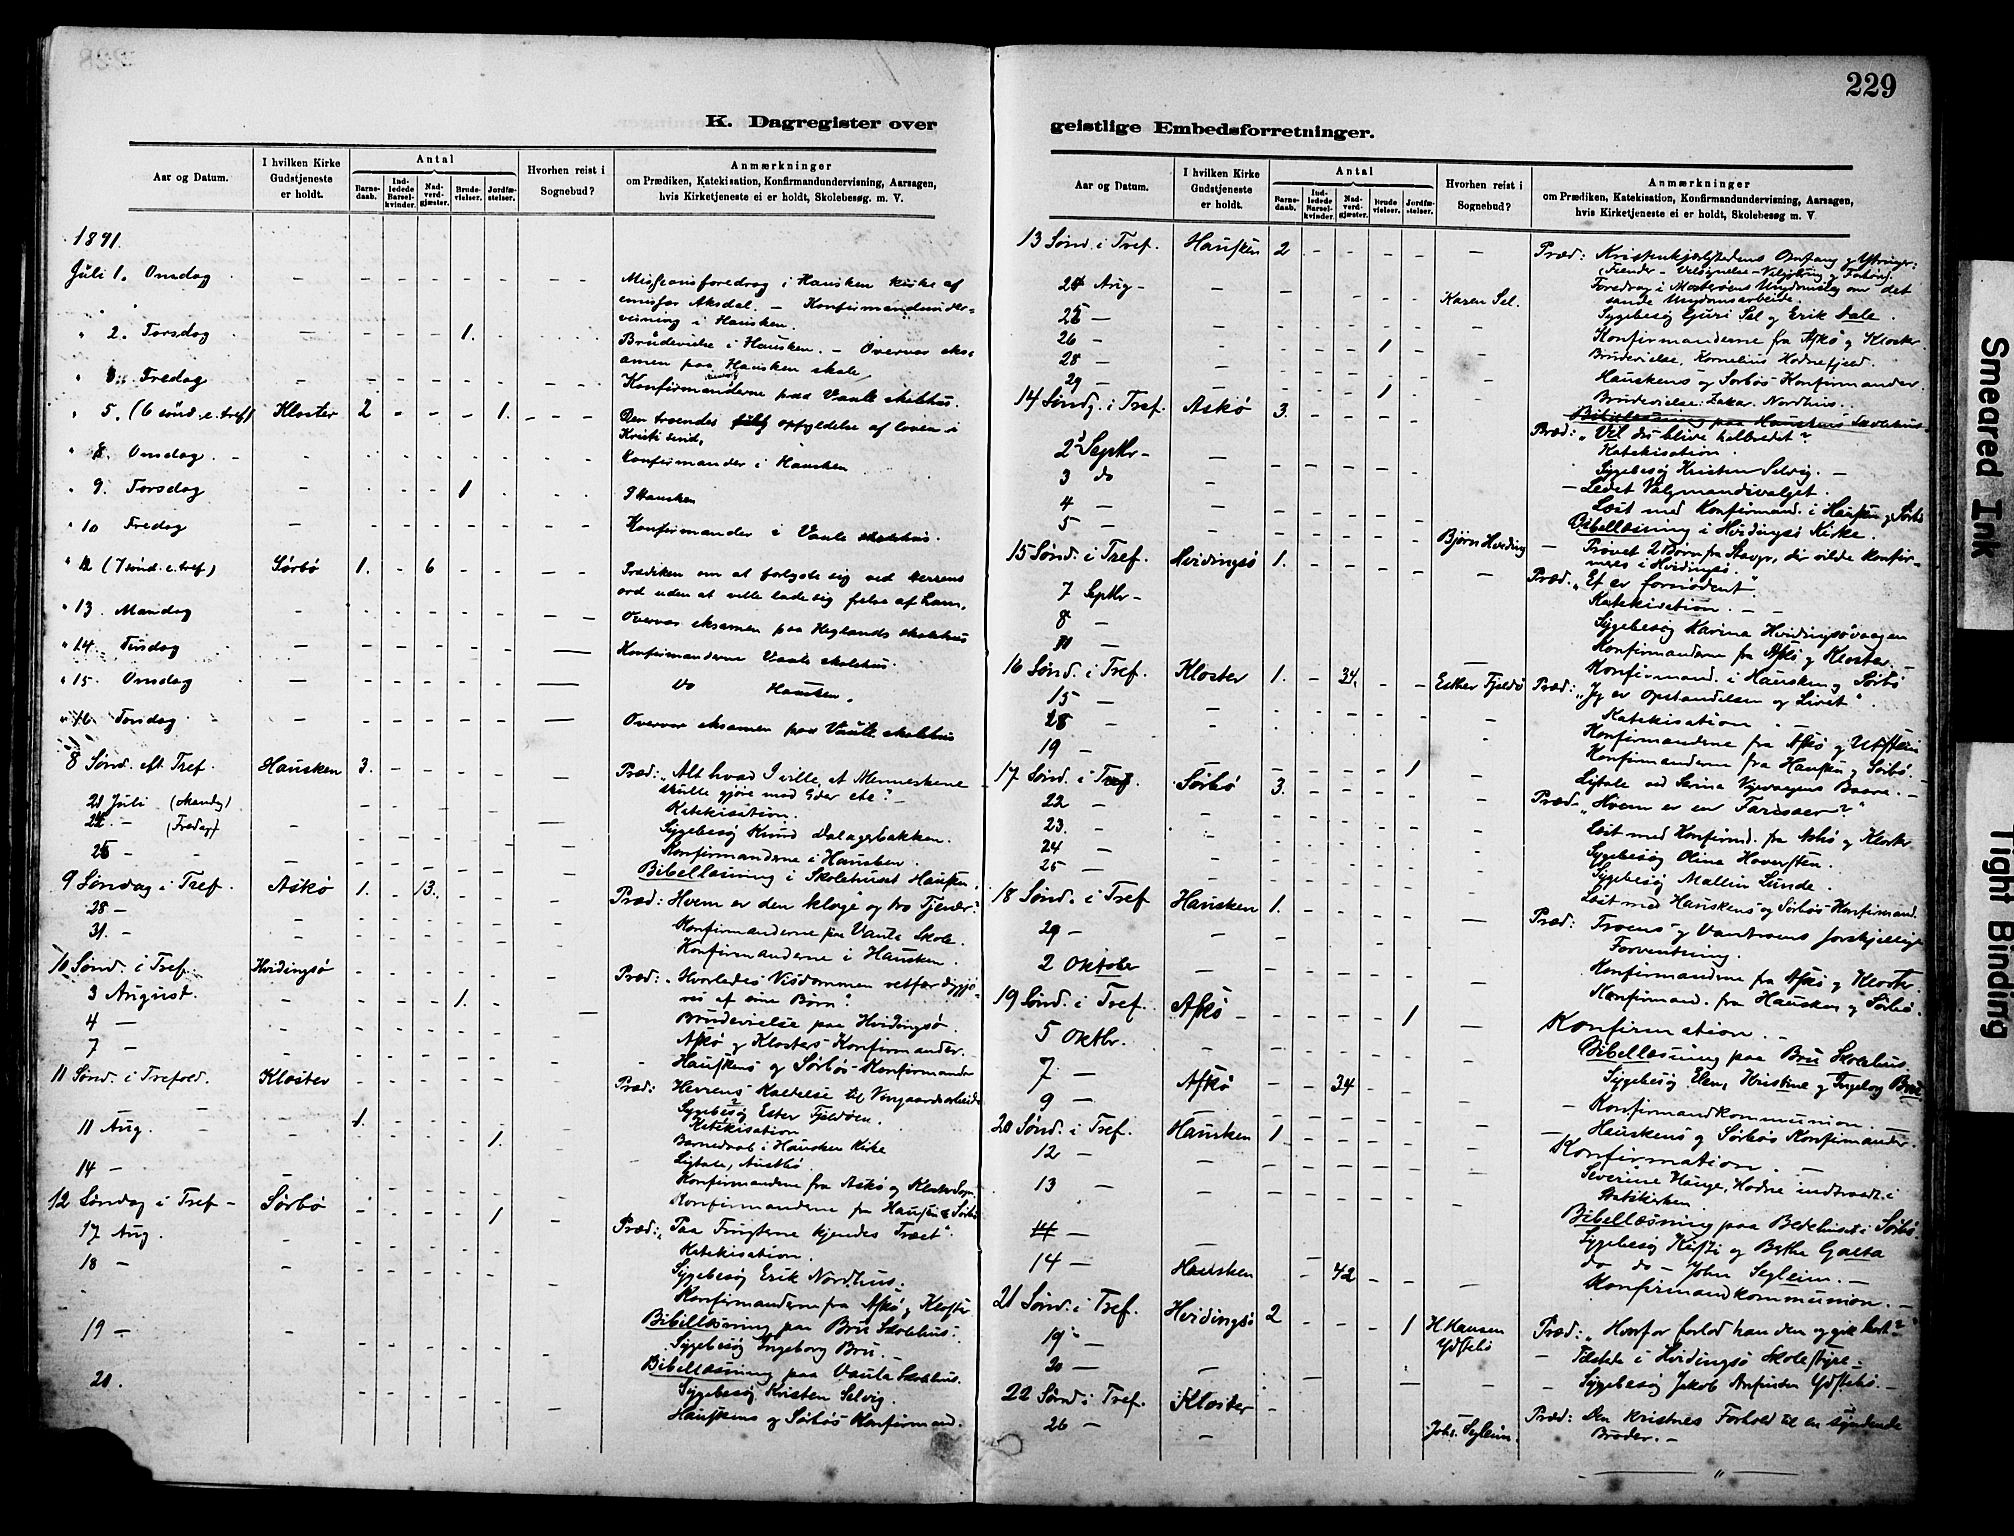 229
K. Dagregister over
geistlige Embedsforretninger.
Aar og Datum.
I hvilken Kirke Gudstjeneste er holdt.
Antal
Barnedaab.
Indledede Barselkvinder.
Nadverdgjæster.
Brudevielser.
Jordfæstelser.
Hvorhen reist i Sognebud?
Anmærkninger
om Prædiken, Katekisation, Konfirmandundervisning, Aarsagen,
hvis Kirketjeneste ei er holdt, Skolebesøg. m. V.
1891
Juli 1. Onsdag - - - - - - - Missionsforedrag i Hausken kirke af
emissær Aksdal. - Konfirmandunder-
visning i Hausken.
" 2. Torsdag - - - - 1. - - Brudevielse i Hausken. - Overvar eks-
amen paa Hausken skole
" Fredag - - - - - - - Konfirmanderne paa Vaule skolehus.
" 5. (6 sønd. e. tref) Kloster 2 - - - 1. - - Den troendes opfyldelse af loven i
Kristi sind.
" 8. Onsdag - - - - - - - Konfirmander i Hausken
" 9. Torsdag - - - - 1 - - I Hausken
" 10 Fredag - - - - - - - Konfirmander i Vaule skolehus.
" 12 (7 sønd. e. tref.) Sørbø 1. - 6 - - - Prædiken om at forlyste sig ved Herrens
ord uden at ville lade sig frelse af ham.
" 13. Mandag - - - - - - - Overvar eksamen paa Heglands skolehus
" 14. Tirsdag - - - - - - - Konfirmanderne Vaule skolehus.
" 15. Onsdag - - - - - - - Do Hausken.
" 16. Torsdag - - - - - - - Overvar eksamen paa Vaule skolehus
8 Sønd. eft. Tref. Hausken 3. - - - - - Præd: "Alt hvad I ville, at Menneskene
skulle gjøre mod Eder etc." -
Katekisation.
20 Juli (Mandg) - Sygebesøg Knud Dalagerbakken.
24 - (Fredag) - Konfirmanderne i Hausken.
25 - - Bibellæsning i Skolehuset Hausken.
9 Søndag i Tref. Askø 1. - 13. - - - Præd: Hvem er den kloge og tro Tjener?
28 - - Konfirmanderne paa Vaule Skole.
31. - - Konfirmanderne i Hausken.
10 Sønd. i Tref. Hvidingsø - - - - - - Præd: "Hvorledes Visdommen retfærdiggjø-
res af sine Børn".
3 August. - - - - 1. - - Brudevielse paa Hvidingsø.
4 - - Askø og Klosters Konfirmander.
7 - - Hauskens og Sørbøs Konfirmander
11 Sønd. i Trefold. Kloster - - - - - - Præd: Herrens Kaldelse til Vingaardsarbeide
Sygebesøg Ester Fjeldøen.
Katekisation
11 Aug. - 1. - - - 1. - Barnedaab i Hausken Kirke
Ligtale, Austbø.
Konfirmanderne fra Askø og Kloster Sogn.
14 - - Konfirmanderne fra Hausken & Sørbø
12 Søndag i Tref - Sørbø - - - - 1 - Præd: "Paa Frugterne kjendes Træet".
Katekisation.
17 Aug. - Sygebesøg Erik Nordhus.
18 - - Konfirmanderne fra Askø og Kloster
Bibellæsning paa Bru Skolehus.
19 - - Sygebesøg Ingeborg Bru.
Bibellæsning paa Vaula Skolehus.
Sygebesøg Kristen Selvig.
20. Hauskens og Sørbøs Konfirmand.
Aar og Datum.
I hvilken Kirke Gudstjeneste er holdt.
Antal
Barnedaab.
Indledede Barselkvinder.
Nadverdgjæster.
Brudevielser.
Jordfæstelser.
Hvorhen reist i Sognebud?
Anmærkninger
om Prædiken, Katekisation, Konfirmandundervisning, Aarsagen,
hvis Kirketjeneste ei er holdt, Skolebesøg m. V.
13 Sønd. i Tref. Hausken 2 - - - - - Præd: Kristenkjærlighedens Omfang og Ytringer:
Fiender - Velsignelse - Velgjøring og Forbøn
24 Aug - - Karen Sel. Foredrag i Mosterøens Ungdomslag om det
sande Ungdomsarbeide.
25 - - Sygebesøg Guri Sel og Erik Dale.
26 - - Konfirmanderne fra Askø og Kloster.
28 - - 1 Brudevielse, Kornelius Hodnefjeld.
29 - - Hauskens og Sørbøs Konfirmander.
14 Søndg. i Tref. Askø 3. - - 1 - Brudevielse: Zakar. Nordhus.
Bibellæsning paa Hauskens Skolehus.
Præd: "Vil du blive helbredet?"
Katekisation.
2 Septbr - Sygebesøg Kristen Selvig. -
3 do - - Ledet Valgmandsvalget.
4 - - Læst med Konfirmand. i Hausken og Sørbø
5 - - Bjørn Hviding Bibellæsning i Hvidingsø Kirke.
- Prøvet 2 Børn fra Stavgr, der vilde konfir-
meres i Hvidingsø.
15 Sønd. i Tref. Hvidingsø 1. - - - - - Præd. "Et er fornødent".
Katekisation. - -
7 Septbr - Sygebesøg Karina Hvidingsøvaagen
8 - - Konfirmanderne fra Askø og Kloster. -
11 - Konfirmand. i Hausken og Sørbø
16 Sønd. i Tref. Kloster 1. - 34. - - Esther Fjeldø Præd: "Jeg er Opstandelsen og Livet".
Katekisation
15 - - Konfirmanderne fra Askø og Utstein
18 - - Konfirmanderne fra Hausken og Sørbø.
19 - - 1 Ligtale ved Serina Vigevaagens Baare. -
17 Sønd. i Tref. Sørbø 3. - - - - - Præd. "Hvem er en Farisæer?"
22 - - Læst med Konfirmd. fra Askø og Kloster
23. - - Sygebesøg Olina Haversten.
24 - - Sygebesøg Mallin Lunde.
25 - - Læst med Hauskens og Sørbøs Konfirmand.
18 Sønd. i Tref Hausken 1. - - - - - Præd: Troens og Vantroens forskjellige
Forventning.
29 - - Konfirmanderne fra Askø og Kloster.
2 Oktober - Konfirmand. fra Hausken og Sørbø.
19 Sønd. i Tref. Askø - - - - 1 - Konfirmation. -
5 Oktbr. - Bibellæsning paa Bru Skolehus
Sygebesøg Elen, Kristine og Ingeborg Bru.
7 - Askø - - 34 - - - Konfirmandkommunion. -
9 - - Hauskens og Sørbøs Konfirmander.
20 Sønd. i Tref. Hausken 1 - - - - - Konfirmation. -
12 - - Severine Hauge, Hodne indtraadt i
Statskirken.
13 - - Bibellæsning paa Bedehuset i Sørbø
Sygebesøg Kisti og Berthe Galta
14 - - do do - John Segleim. -
14 - Hausken - - 42 - - - Konfirmandkommunion. -
21 Sønd. i Tref. Hvidingsø 2 - - - 1 H Hansen Ydstebø Præd: "Hvorfor forlod han den og gik bort?"
19 - - Tilstede i Hvidingsø Skolestyre -
20 - - Sygebesøg Jakob Anfindsen Ydstebø. -
22 Sønd i Tref. Kloster - - Præd: Den Kristnes Forhold til en syndende
Broder. -
26 - - Johs. Segleim.
Smeared Ink
Tight Binding